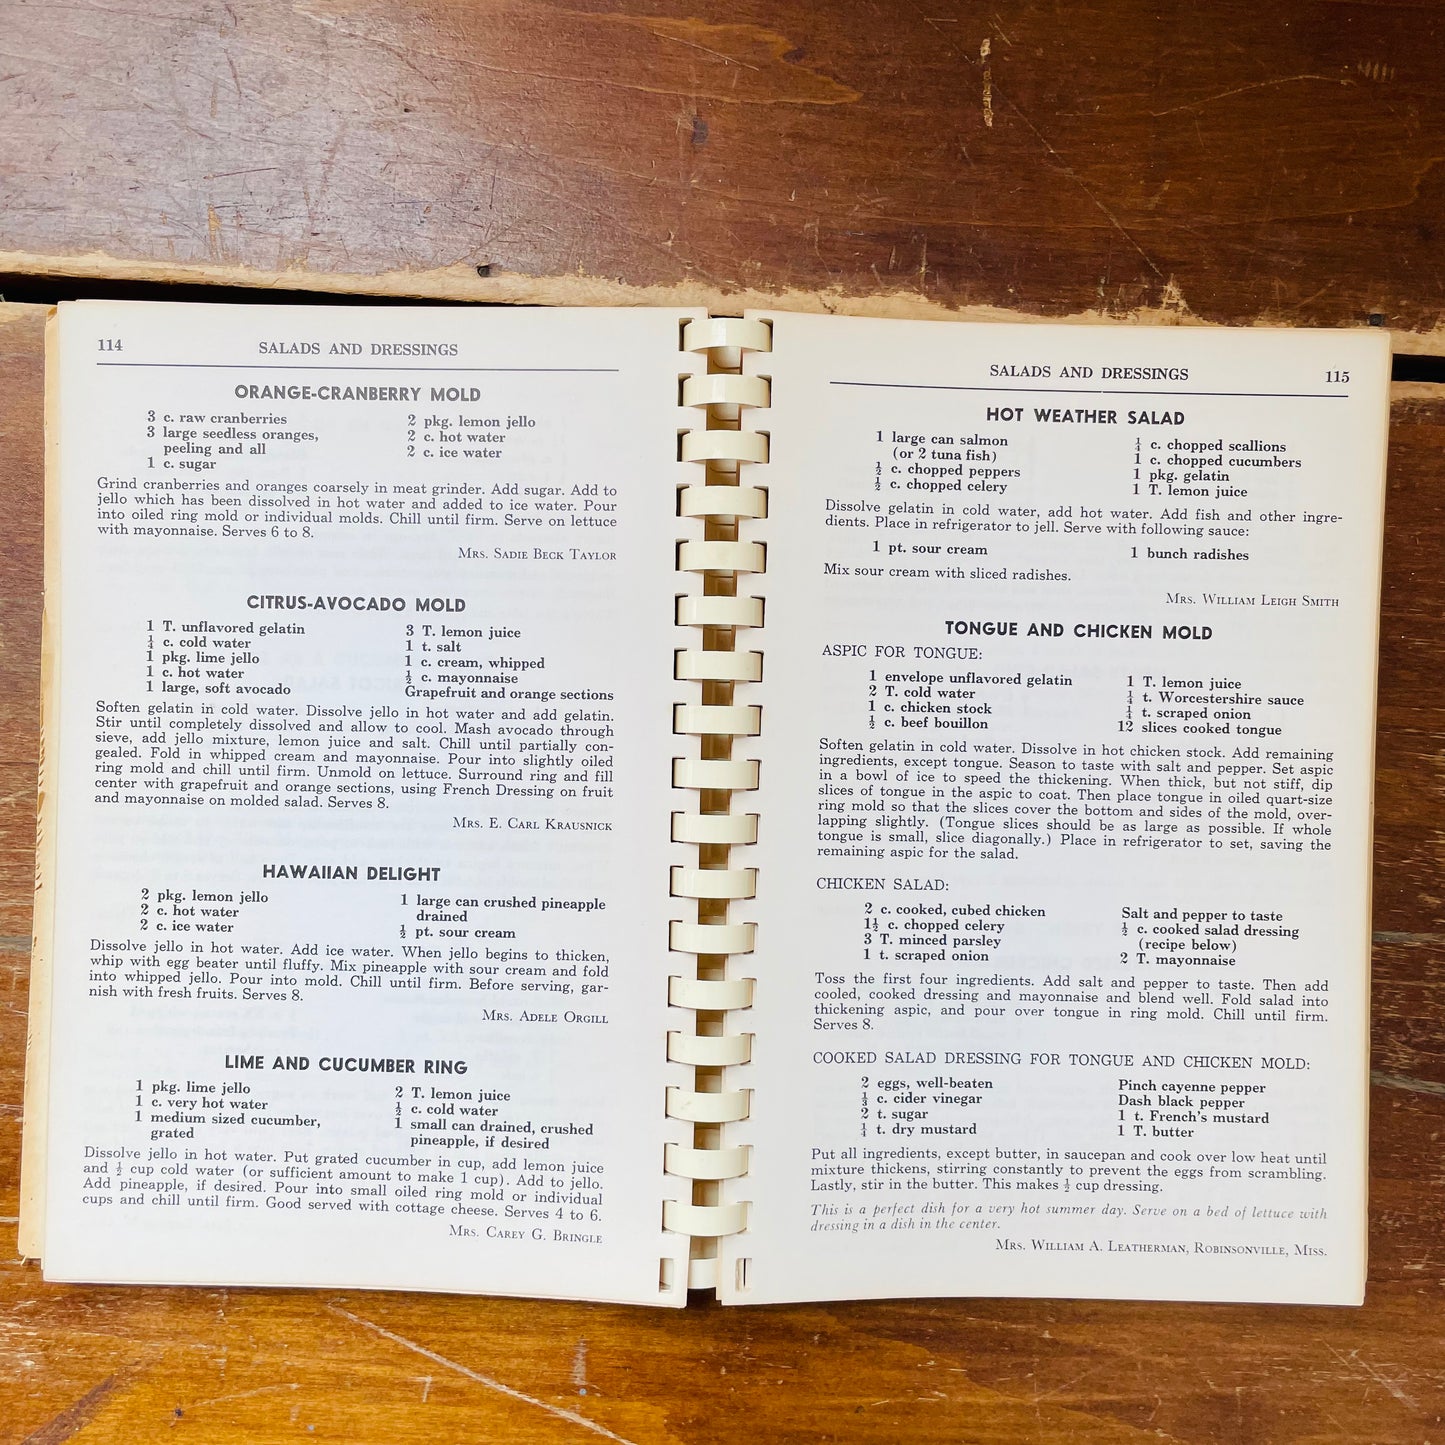 114
SALADS AND DRESSINGS
ORANGE-CRANBERRY MOLD
3 c. raw cranberries
3 large seedless oranges,
peeling and all
1 c. sugar
2 pkg. lemon jello
2 c. hot water
2 c. ice water
Grind cranberries and oranges coarsely in meat grinder. Add sugar. Add to
jello which has been dissolved in hot water and added to ice water. Pour
into oiled ring mold or individual molds. Chill until firm. Serve on lettuce
with mayonnaise. Serves 6 to 8.
Mrs. Sadie Beck Taylor
CITRUS-AVOCADO MOLD
1 T. unflavored gelatin
¼ c. cold water
1 pkg. lime jello
1 c. hot water
1 large, soft avocado
3 T. lemon juice
1 t. salt
1 c. cream, whipped
½ c. mayonnaise
Grapefruit and orange sections
Soften gelatin in cold water. Dissolve jello in hot water and add gelatin.
Stir until completely dissolved and allow to cool. Mash avocado through
sieve, add jello mixture, lemon juice and salt. Chill until partially con-
gealed. Fold in whipped cream and mayonnaise. Pour into slightly oiled
ring mold and chill until firm. Unmold on lettuce. Surround ring and fill
center with grapefruit and orange sections, using French Dressing on fruit
and mayonnaise on molded salad. Serves 8.
Mrs. E. Carl Krausnick
HAWAIIAN DELIGHT
2 pkg. lemon jello
2 c. hot water
2 c. ice water
1 large can crushed pineapple
drained
½ pt. sour cream
Dissolve jello in hot water. Add ice water. When jello begins to thicken,
whip with egg beater until fluffy. Mix pineapple with sour cream and fold
into whipped jello. Pour into mold. Chill until firm. Before serving, gar-
nish with fresh fruits. Serves 8.
Mrs. Adele Orgill
LIME AND CUCUMBER RING
1 pkg. lime jello
1 c. very hot water
1 medium sized cucumber,
grated
2 T. lemon juice
½ c. cold water
1 small can drained, crushed
pineapple, if desired
Dissolve jello in hot water. Put grated cucumber in cup, add lemon juice
and ½ cup cold water (or sufficient amount to make 1 cup). Add to jello.
Add pineapple, if desired. Pour into small oiled ring mold or individual
cups and chill until firm. Good served with cottage cheese. Serves 4 to 6.
Mrs. Carey G. Bringle
SALADS AND DRESSINGS
115
HOT WEATHER SALAD
1 large can salmon
(or 2 tuna fish)
½ c. chopped peppers
½ c. chopped celery
¼ c. chopped scallions
1 c. chopped cucumbers
1 pkg. gelatin
1 T. lemon juice
Dissolve gelatin in cold water, add hot water. Add fish and other ingre-
dients. Place in refrigerator to jell. Serve with following sauce:
1 pt. sour cream
1 bunch radishes
Mix sour cream with sliced radishes.
Mrs. William Leigh Smith
TONGUE AND CHICKEN MOLD
ASPIC FOR TONGUE:
1 envelope unflavored gelatin
2 T. cold water
1 c. chicken stock
½ c. beef bouillon
1 T. lemon juice
¼ t. Worcestershire sauce
¼ t. scraped onion
12 slices cooked tongue
Soften gelatin in cold water. Dissolve in hot chicken stock. Add remaining
ingredients, except tongue. Season to taste with salt and pepper. Set aspic
in a bowl of ice to speed the thickening. When thick, but not stiff, dip
slices of tongue in the aspic to coat. Then place tongue in oiled quart-size
ring mold so that the slices cover the bottom and sides of the mold, over-
lapping slightly. (Tongue slices should be as large as possible. If whole
tongue is small, slice diagonally.) Place in refrigerator to set, saving the
remaining aspic for the salad.
CHICKEN SALAD:
2 c. cooked, cubed chicken
1½ c. chopped celery
3 T. minced parsley
1 t. scraped onion
Salt and pepper to taste
½ c. cooked salad dressing
(recipe below)
2 T. mayonnaise
Toss the first four ingredients. Add salt and pepper to taste. Then add
cooled, cooked dressing and mayonnaise and blend well. Fold salad into
thickening aspic, and pour over tongue in ring mold. Chill until firm.
Serves 8.
COOKED SALAD DRESSING FOR TONGUE AND CHICKEN MOLD:
2 eggs, well-beaten
⅓ c. cider vinegar
2 t. sugar
¼ t. dry mustard
Pinch cayenne pepper
Dash black pepper
1 t. French's mustard
1 T. butter
Put all ingredients, except butter, in saucepan and cook over low heat until
mixture thickens, stirring constantly to prevent the eggs from scrambling.
Lastly, stir in the butter. This makes ½ cup dressing.
This is a perfect dish for a very hot summer day. Serve on a bed of lettuce with
dressing in a dish in the center.
Mrs. William A. Leatherman, Robinsonville, Miss.